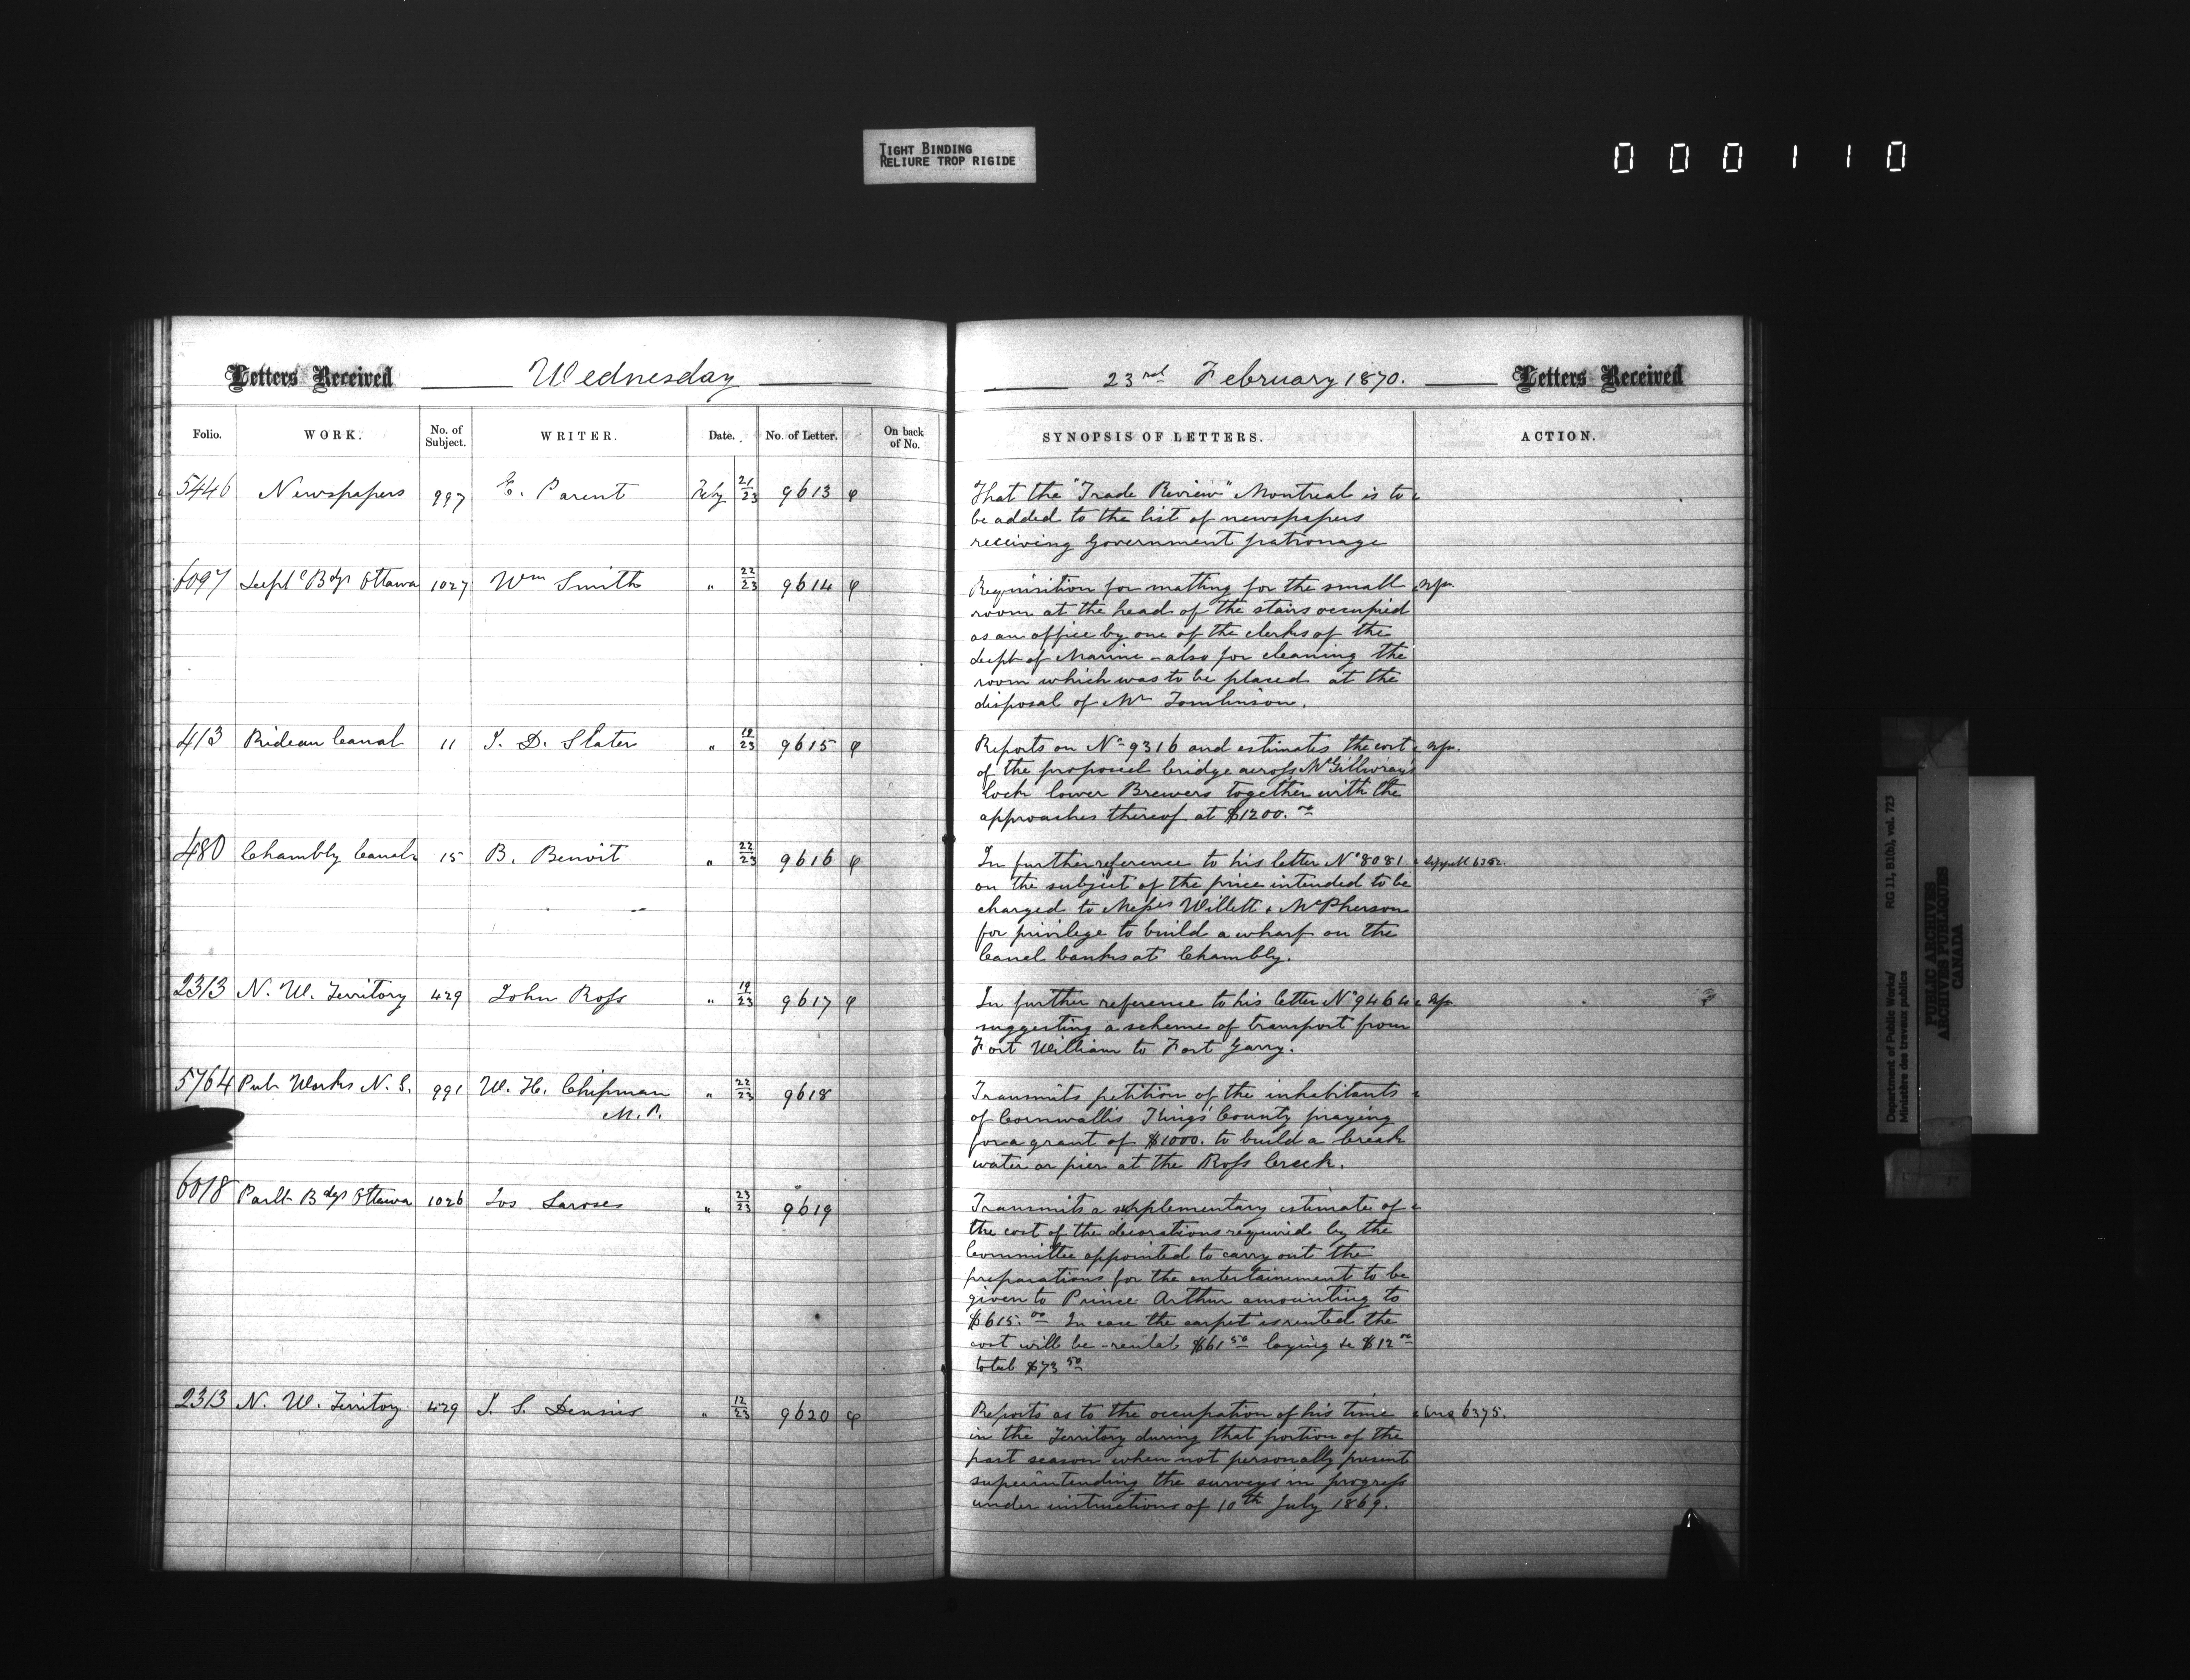 TIGHT BINDING
RELIURE TROP RIGIDE
000110
Letters Received Wednesday
Folio. WORK. No. of Subject. WRITER. Date. No. of Letter. On back of No.
5446 Newspapers 997 E. Parent Feby 21/23 9613 φ
6097 Deptl Bdgs Ottawa 1027 Wm Smith " 22/23 9614 φ
413 Rideau Canal 11 J. D. Slater " 19/23 9615 φ
480 Chambly Canal 15 B. Benoit " 22/23 9616 φ
2313 N. W. Territory 429 John Ross " 19/23 9617 φ
5764 Pub Works N. S. 991 W. H. Chipman " 22/23 9618
M. P.
6018 Parlt Bdgs Ottawa 1026 Jos Larose " 23/23 9619
2313 N. W. Territory 429 J. S. Dennis " 12/23 9620 φ
23rd February 1870. Letters Received
SYNOPSIS OF LETTERS. ACTION.
That the "Trade Review" Montreal is to
be added to the list of newspapers
receiving Government patronage
Requisition for matting for the small
room at the head of the stairs occupied
as an office by one of the clerks of the
Dept of Marine - also for cleaning the
room which was to be placed at the
disposal of Mr Tomlinson.
Reports on No 9316 and estimates the cost
of the proposed bridge across McGillivray's
lock lower Brewers together with the
approaches thereof at $1200.oo
In further reference to his letter No 8081
on the subject of the price intended to be
charged to Messrs Willett & McPherson
for privilege to build a wharf on the
Canal banks at Chambly.
In further reference to his letter No 9464
suggesting a scheme of transport from
Fort William to Fort Garry.
Transmits petition of the inhabitants
of Cornwallis Kings' County praying
for a grant of $1000. to build a break
water or pier at the Ross Creek.
Transmits a supplementary estimate of
the cost of the decorations required by the
Committee appointed to carry out the
preparations for the entertainment to be
given to Prince Arthur amounting to
$615.oo In case the carpet is rented the
cost will be - rental $61 50 laying &c $12 oo
total $73 50
Reports as to the occupation of his time Ans 6375.
in the Territory during that portion of the
past season when not personally present
superintending the surveys in progress
under instructions of 10th July 1869.
Department of Public Works/ RG 11, B1(b), vol. 723
Ministère des travaux publics
PUBLIC ARCHIVES
ARCHIVES PUBLIQUES
CANADA